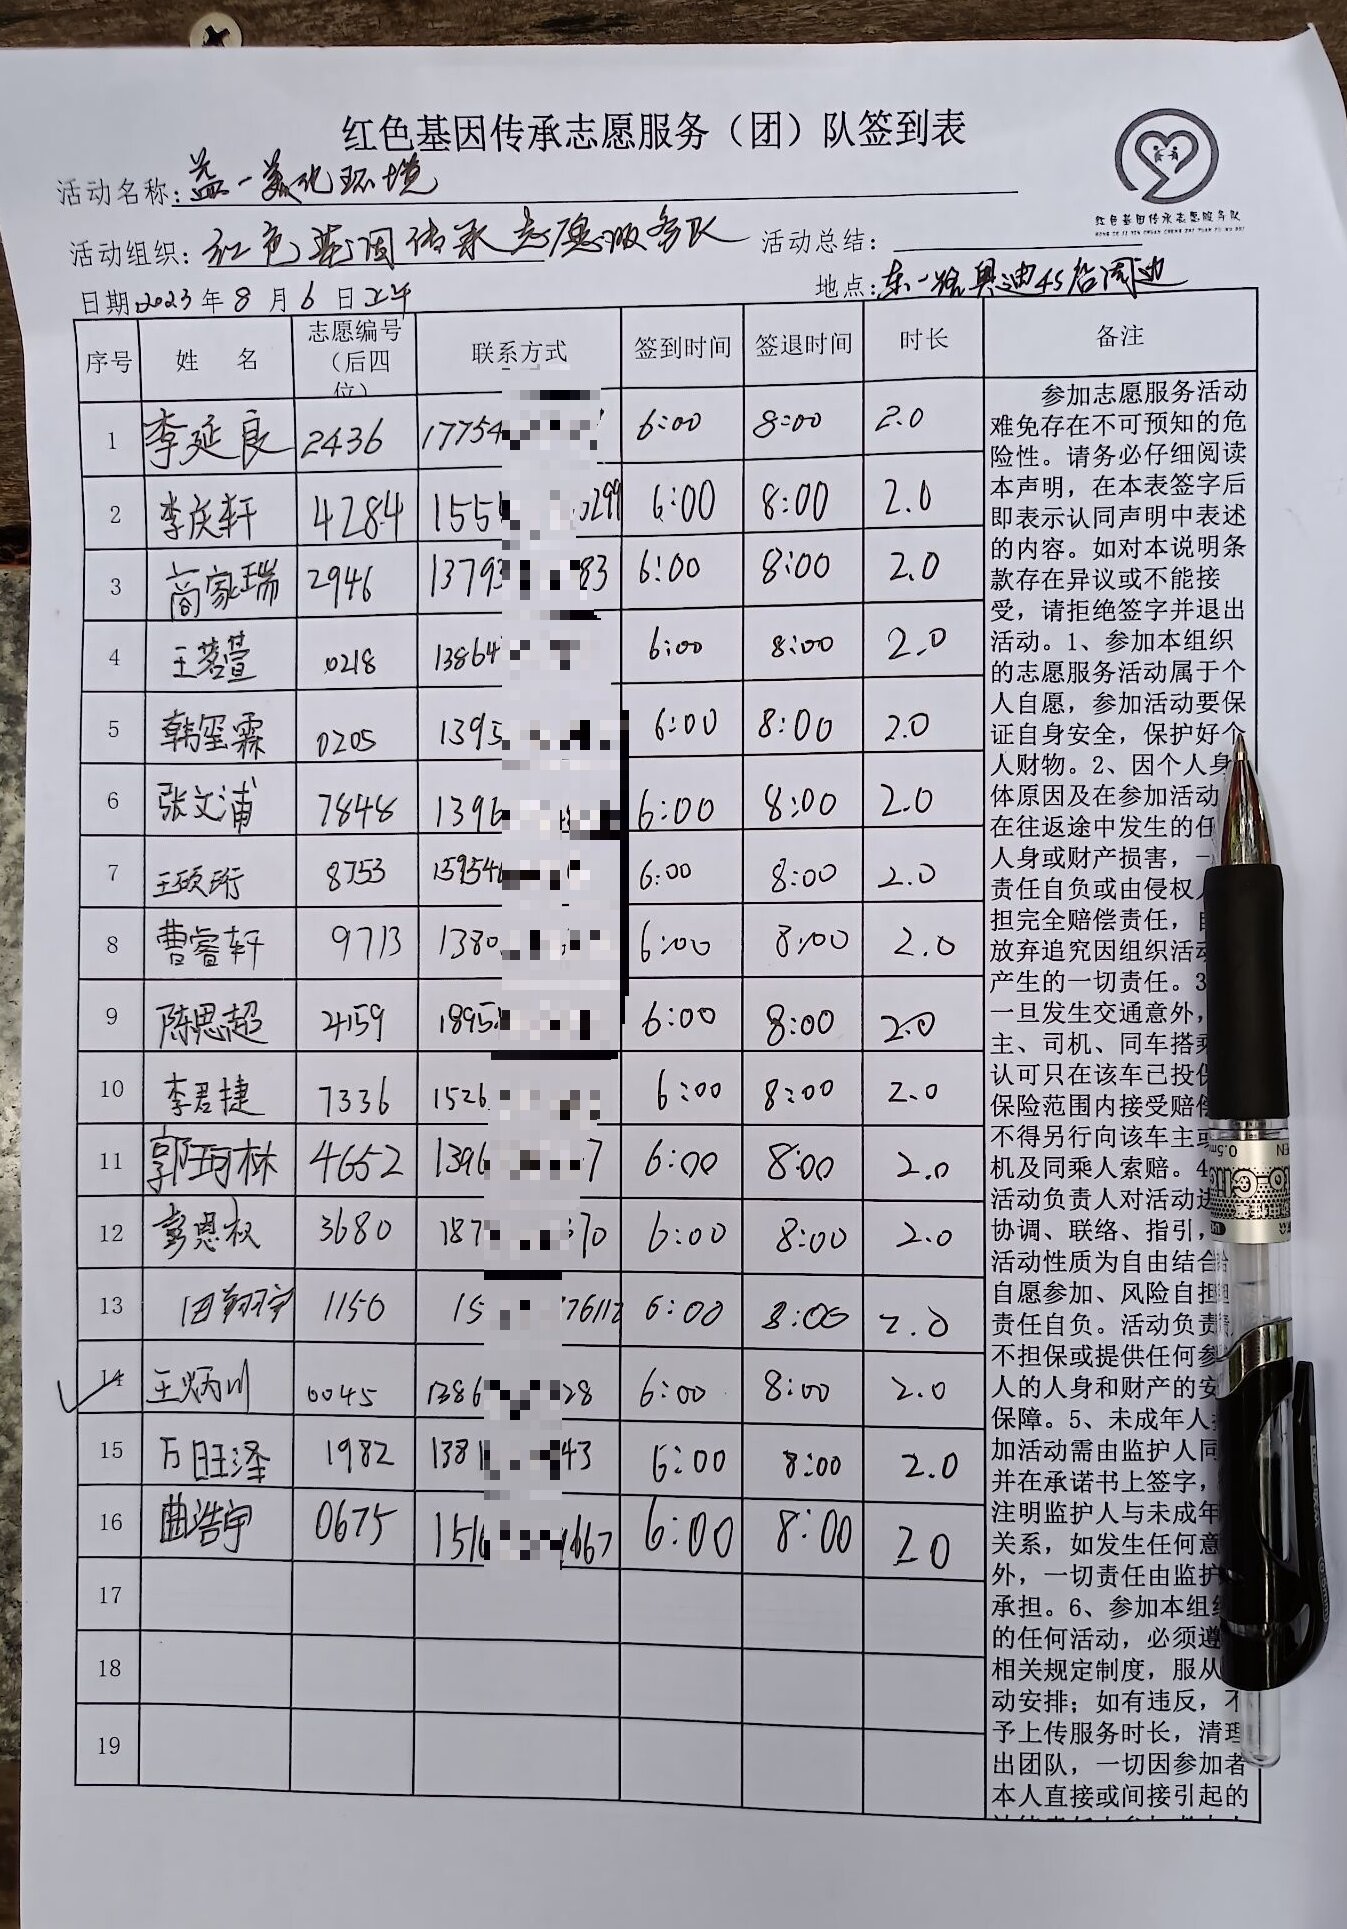 红色基因传承志愿服务（团）队签到表
红色基因传承志愿服务队
HONG SE JI YIN CHUAN CHENG ZHI YUAN FU WU DUI
活动名称：益一美化环境
活动组织：红色基因传承志愿服务队 活动总结：
日期2023年8月6日上午 地点：东一路奥迪4S店周边
序号 姓 名 志愿编号（后四位） 联系方式 签到时间 签退时间 时长 备注
1 李延良 2436 17754 6:00 8:00 2.0
2 李庆轩 4284 155 0299 6:00 8:00 2.0
3 商家瑞 2946 13793 83 6:00 8:00 2.0
4 王茗萱 0218 13864 6:00 8:00 2.0
5 韩玺霖 0205 1395 6:00 8:00 2.0
6 张文浦 7848 1396 6:00 8:00 2.0
7 王硕珩 8753 15954 6:00 8:00 2.0
8 曹睿轩 9713 1380 6:00 8:00 2.0
9 陈思超 2159 1895 6:00 8:00 2.0
10 李君捷 7336 1526 6:00 8:00 2.0
11 郭珂林 4652 1396 7 6:00 8:00 2.0
12 彭恩权 3680 187 70 6:00 8:00 2.0
13 田翔宇 1150 15 76112 6:00 8:00 2.0
14 王炳川 0045 1386 28 6:00 8:00 2.0
15 万旺泽 1982 138 43 6:00 8:00 2.0
16 曲浩宇 0675 151 667 6:00 8:00 20
17
18
19
参加志愿服务活动
难免存在不可预知的危
险性。请务必仔细阅读
本声明，在本表签字后
即表示认同声明中表述
的内容。如对本说明条
款存在异议或不能接
受，请拒绝签字并退出
活动。1、参加本组织
的志愿服务活动属于个
人自愿，参加活动要保
证自身安全，保护好个
人财物。2、因个人身
体原因及在参加活动
在往返途中发生的任
人身或财产损害，一
责任自负或由侵权人
担完全赔偿责任，自
放弃追究因组织活动
产生的一切责任。3
一旦发生交通意外，
主、司机、同车搭乘
认可只在该车已投保
保险范围内接受赔偿
不得另行向该车主或
机及同乘人索赔。4
活动负责人对活动进
协调、联络、指引，
活动性质为自由结合
自愿参加、风险自担
责任自负。活动负责
不担保或提供任何参
人的人身和财产的安
保障。5、未成年人
加活动需由监护人同
并在承诺书上签字，
注明监护人与未成年
关系，如发生任何意
外，一切责任由监护
承担。6、参加本组织
的任何活动，必须遵
相关规定制度，服从
动安排；如有违反，不
予上传服务时长，清理
出团队，一切因参加者
本人直接或间接引起的
0.5m